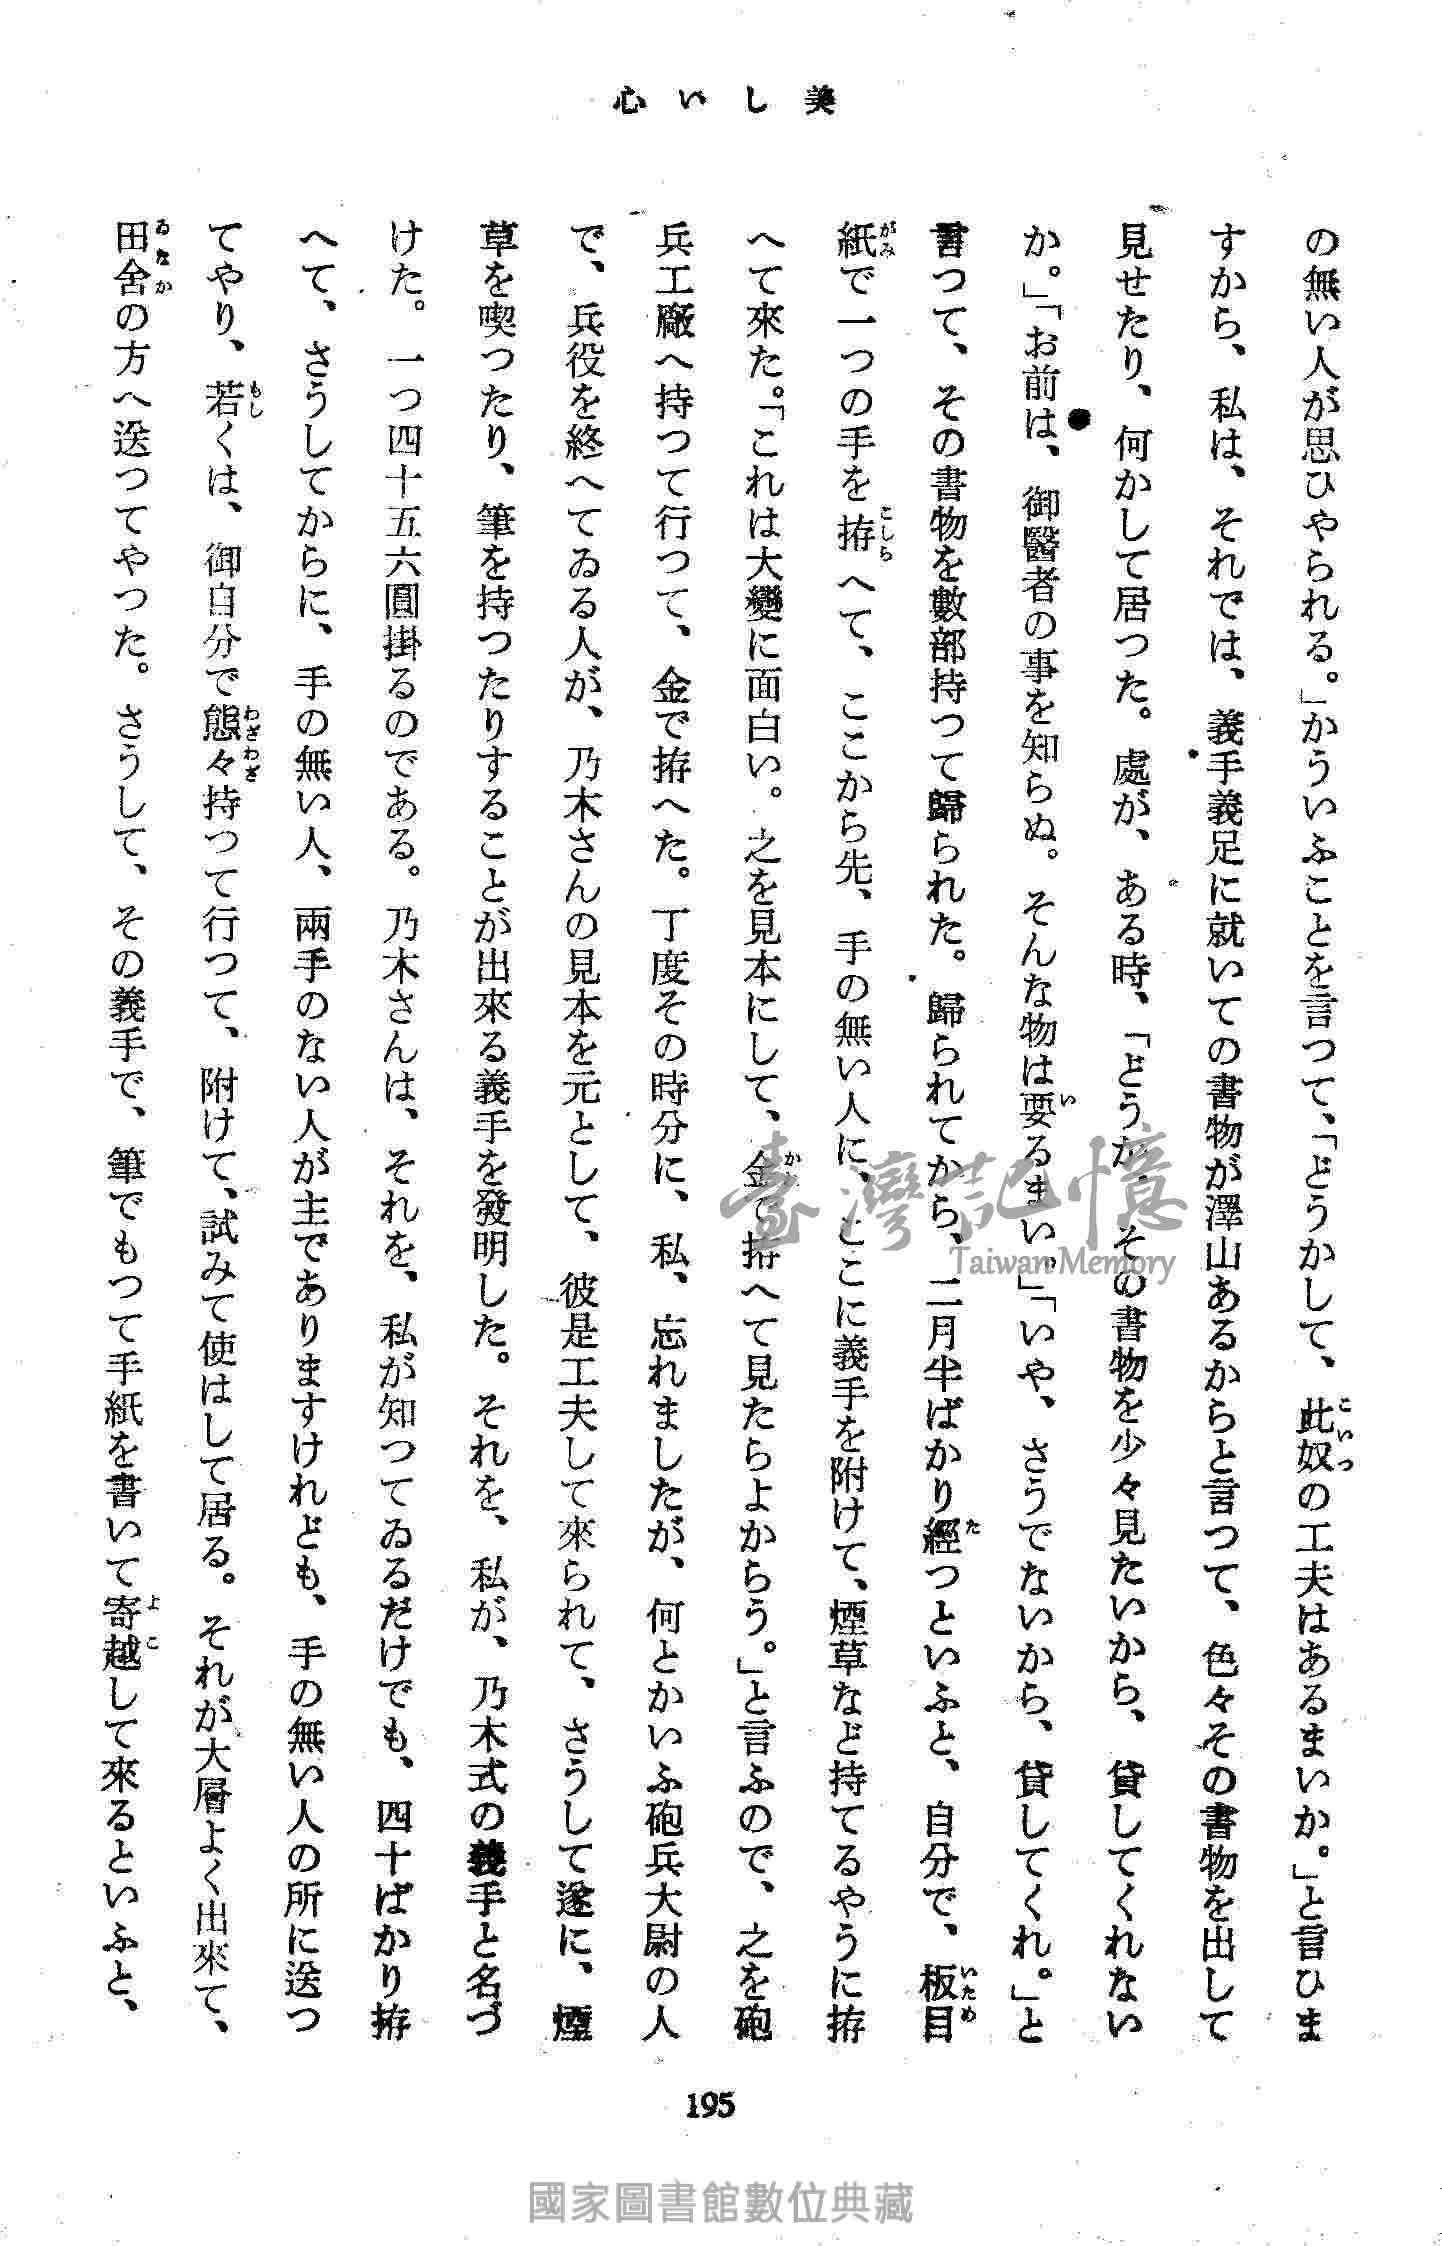 美しい心
の無い人が思ひやられる。」かういふことを言つて、「どうかして、此奴の工夫はあるまいか。」と言ひま
すから、私は、それでは、義手義足に就いての書物が澤山あるからと言つて、色々その書物を出して
見せたり、何かして居つた。處が、ある時、「どうか、その書物を少々見たいから、貸してくれない
か。」「お前は、御醫者の事を知らぬ。そんな物は要るまい。」「いや、さうでないから、貸してくれ。」と
言つて、その書物を數部持つて歸られた。歸られてから、二月半ばかり經つといふと、自分で、板目
紙で一つの手を拵へて、ここから先、手の無い人に、ここに義手を附けて、煙草など持てるやうに拵
へて來た。「これは大變に面白い。之を見本にして、金で拵へて見たらよからう。」と言ふので、之を砲
兵工廠へ持つて行つて、金で拵へた。丁度その時分に、私、忘れましたが、何とかいふ砲兵大尉の人
で、兵役を終へてゐる人が、乃木さんの見本を元として、彼是工夫して來られて、さうして遂に、煙
草を喫つたり、筆を持つたりすることが出來る義手を發明した。それを、私が、乃木式の義手と名づ
けた。一つ四十五六圓掛るのである。乃木さんは、それを、私が知つてゐるだけでも、四十ばかり拵
へて、さうしてからに、手の無い人、兩手のない人が主でありますけれども、手の無い人の所に送つ
てやり、若くは、御自分で態々持つて行つて、附けて、試みて使はして居る。それが大層よく出來て、
田舍の方へ送つてやつた。さうして、その義手で、筆でもつて手紙を書いて寄越して來るといふと、
195
臺灣記憶
Taiwan Memory
國家圖書館數位典藏